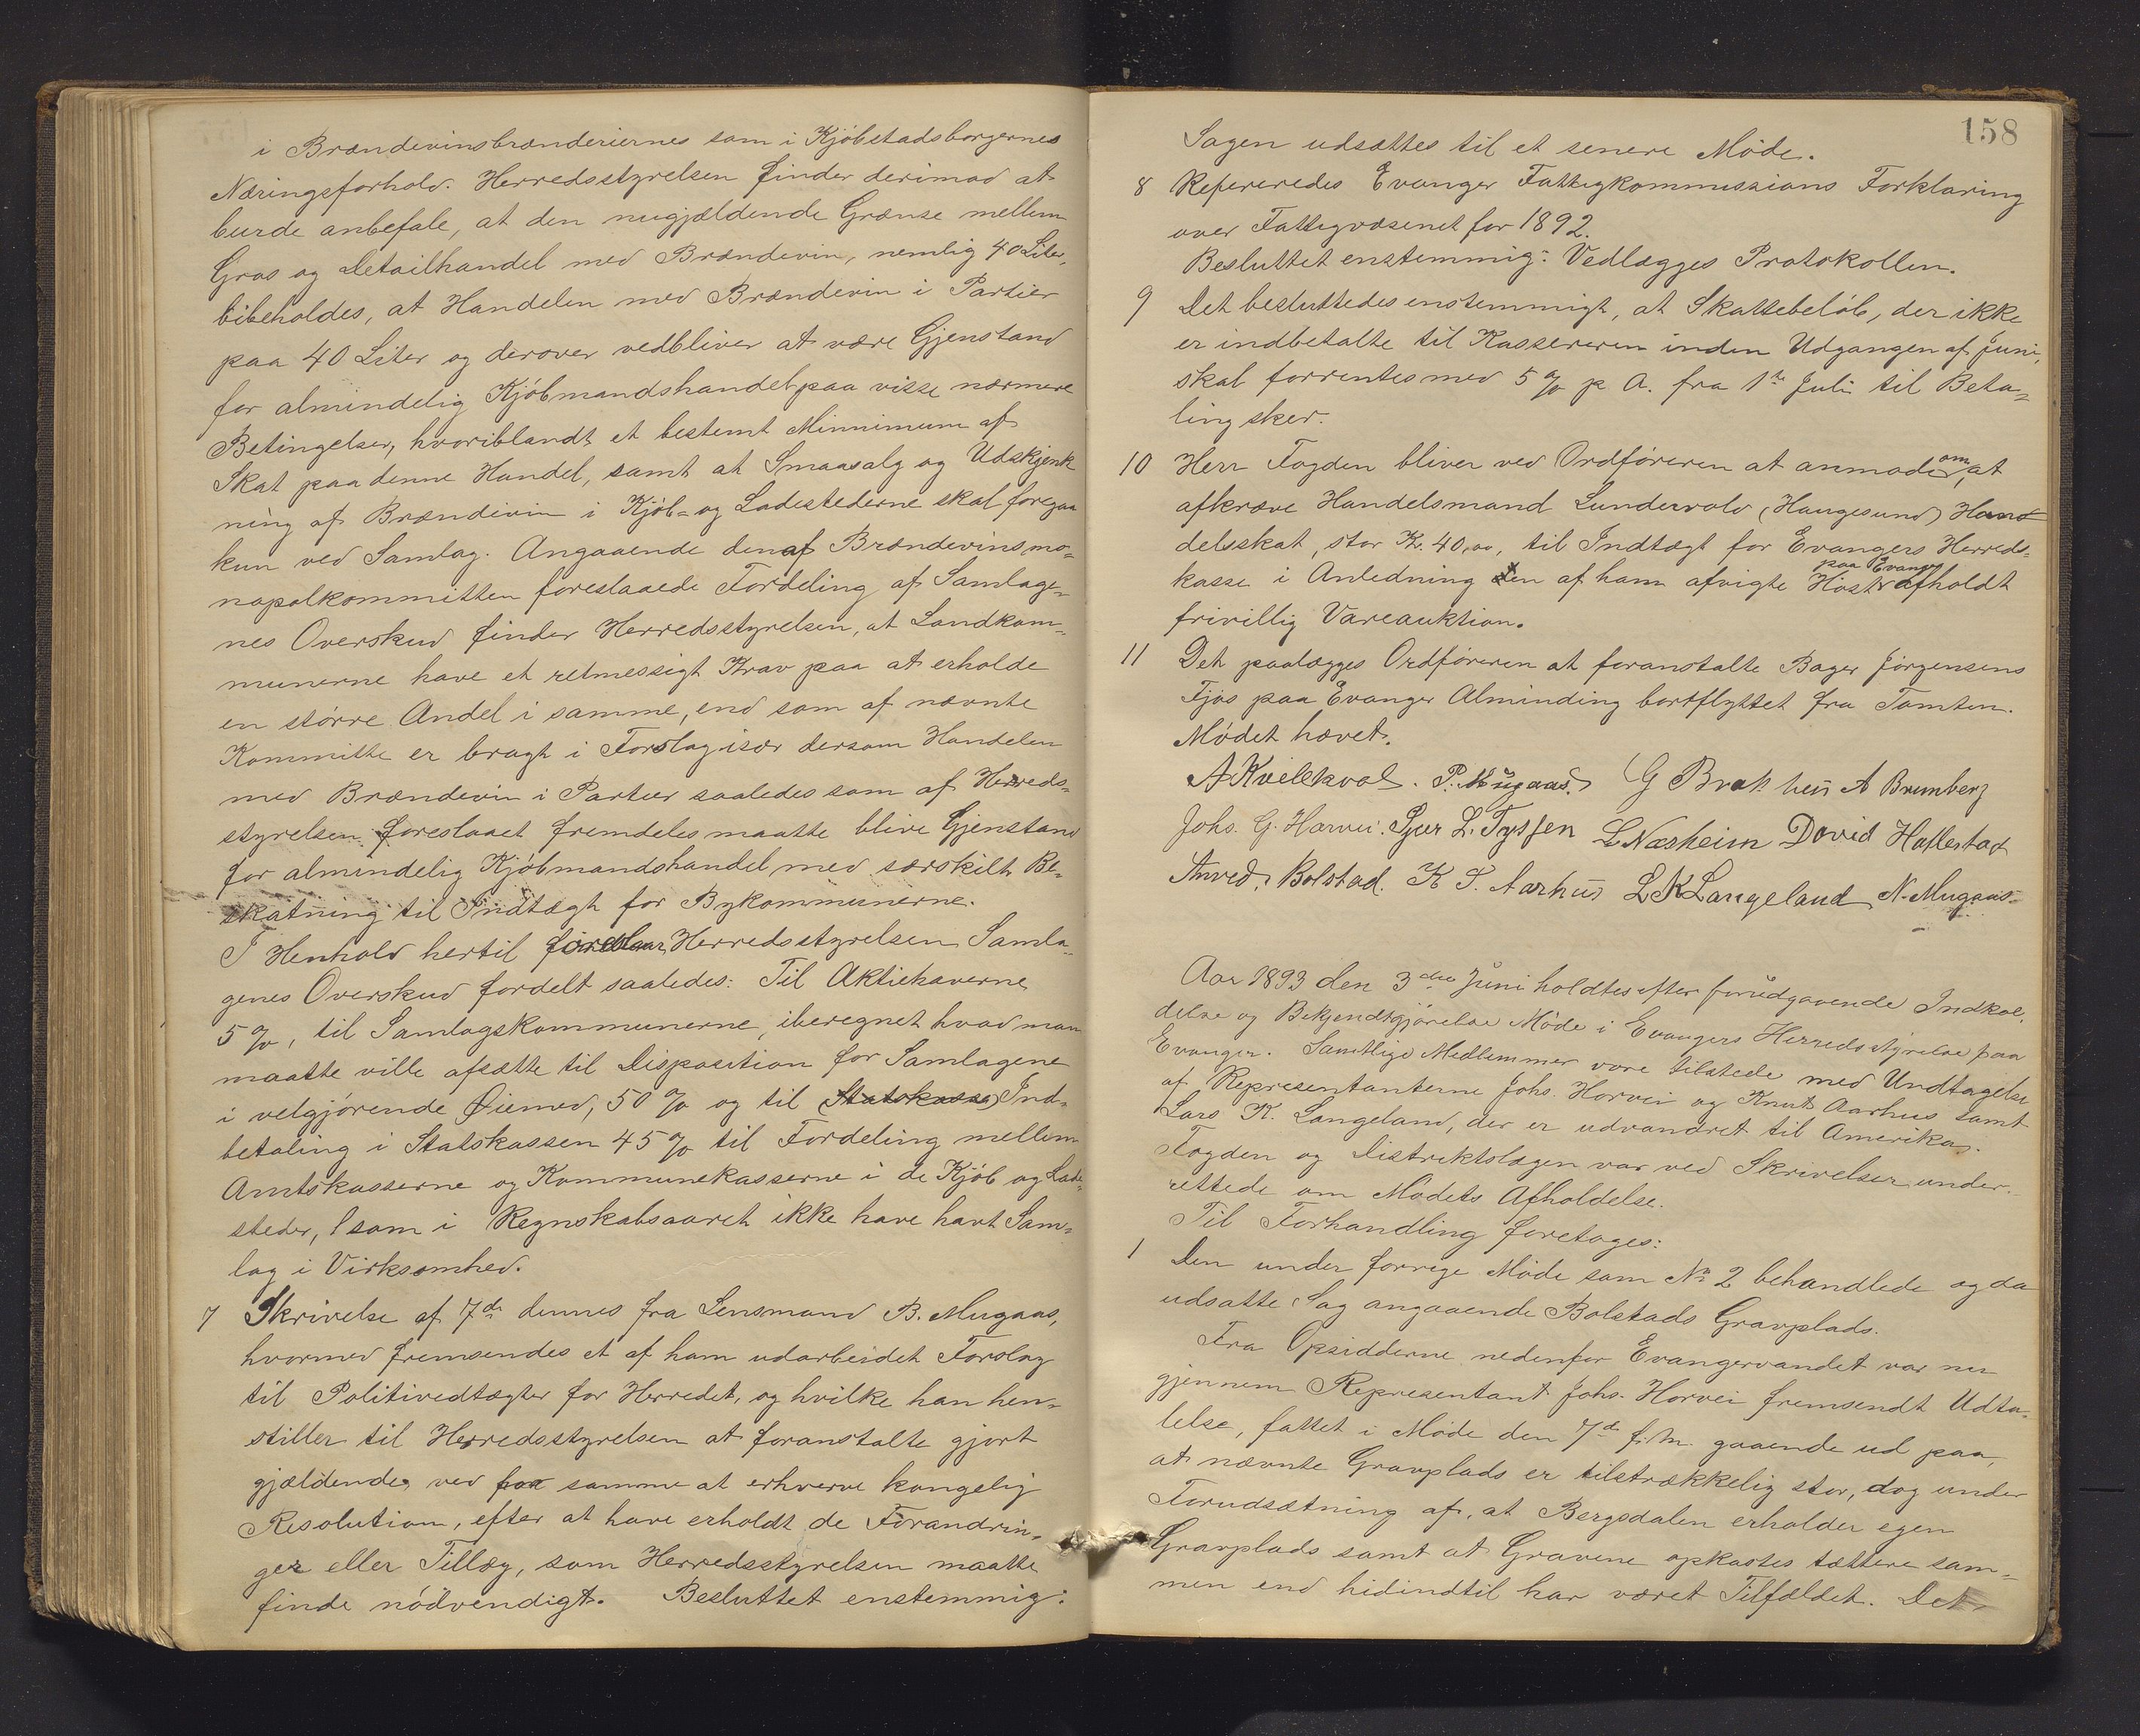 i Brændevinsbrænderiernes som i Kjöbstadsborgernes
Næringsforhold. Herredsstyrelsen finder derimod at
burde anbefale, at den nugjældende Grænse mellem
Gros og Detailhandel med Brændevin, nemlig 40 Liter,
bibeholdes, at Handelen med Brændevin i Partier
paa 40 Liter og derover vedbliver at være Gjenstand
for almindelig Kjöbmandshandel paa visse nærmere
Betingelser, hvoriblandt et bestemt Minnimum af
Skat paa denne Handel, samt at Smaasalg og Udskjenk
ning af Brændevin i Kjöb= og Ladestederne skal foregaa
kun ved Samlag. Angaaende den af Brændevinsmo=
nopolkommitten foreslaaede Fordeling af Samlage=
nes Overskud finder Herredsstyrelsen, at Landkom=
munerne have et retmessigt Krav paa at erholde
en större Andel i samme, end som af nævnte
Kommitte er bragt i Forslag især dersom Handelen
med Brændevin i Partier saaledes som af Herreds=
styrelsen foreslaaet fremdeles maatte blive Gjenstand
for almindelig Kjöbmandshandel med særskilt Be=
skatning til Indtægt for Bykommunerne.
I Henhold hertil foreslaar Herredsstyrelsen Samla=
genes Overskud fordelt saaledes: Til Aktiehaverne
5 %, til Samlagskommunerne, iberegnet hvad man
maatte ville afsætte til Disposition for Samlagene
i velgjörende Øiemed, 50 % og til (Statskasse) Ind=
betaling i Statskassen 45 % til Fordeling mellem
Amtskasserne og Kommunekasserne i de Kjöb og Lade=
steder, som i Regnskabsaaret ikke have havt Sam=
lag i Virksomhed.
7 Skrivelse af 7de dennes fra Lensmand B. Mugaas,
hvormed fremsendes et af ham udarbeidet Forslag
til Politivedtægter for Herredet, og hvilke han hen=
stiller til Herredsstyrelsen at foranstalte gjort
gjældende, ved paa samme at erhverve kongelig
Resolution, efter at have erholdt de Forandrin=
ger eller Tillæg, som Herredsstyrelsen maatte
finde nödvendigt. Besluttet enstemmig:
158
Sagen udsættes til et senere Möde.
8 Refereredes Evanger Fattigkommissions Forklaring
over Fattigvæsenet for 1892.
Besluttet enstemmig: Vedlægges Protokollen.
9 Det besluttedes enstemmigt, at Skattebelöb, der ikke
er indbetalte til Kassereren inden Udgangen af Juni,
skal forrentes med 5 % p A. fra 1ste Juli til Beta=
ling sker.
10 Herr Fogden bliver ved Ordföreren at anmode om, at
afkræve Handelsmand Lundervold (Haugesund) Han
delsskat, stor Kr. 40,00, til Indtægt for Evangers Herreds=
kasse i Anledning den af ham afvigte Höst paa Evanger afholdt
frivillig Vareauktion.
11 Det paalægges Ordföreren at foranstalte Bager Jörgensens
Fjös paa Evanger Alminding bortflyttet fra Tomten.
Mödet hævet.
A Kvilekval. P. Mugaas. G Brak A Brunberg
Johs. G. Horvei. Sjur L. Tyssen L Næsheim David Hallestad
Anved. Bolstad. K T. Aarhus L K Langeland N. Mugaas
Aar 1893 den 3die Juni holdtes efter forudgaaende Indkal=
delse og Bekjendtgjörelse Möde i Evangers Herredsstyrelse paa
Evanger. Samtlige Medlemmer vare tilstede med Undtagelse
af Representanterne Johs. Horvei og Knut Aarhus samt
Lars K. Langeland, der er udvandret til Amerika.
Fogden og Distriktslægen var ved Skrivelser under=
rettede om Mödets Afholdelse.
Til Forhandling foretages:
1 Den under forrige Möde som No 2 behandlede og da
udsatte Sag angaaende Bolstads Gravplads.
Fra Opsidderne nedenfor Evangervandet var nu
gjennem Representant Johs. Horvei fremsendt Udta=
lelse, fattet i Möde den 7de f. M. gaaende ud paa,
at nævnte Gravplads er tilstrækkelig stor, dog under
Forudsætning af, at Bergsdalen erholder egen
Gravplads samt at Gravene opkastes tættere sam=
men end hidindtil har været Tilfældet. Det